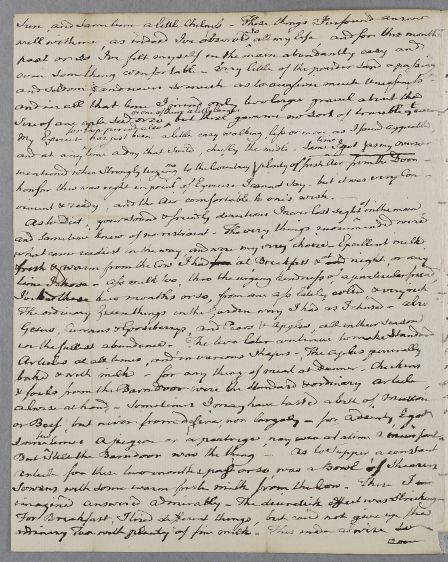 and sometimes a little Chilness - These things I've found answer
well with me, as indeed I've observ'd all my life and for this month
past or so I've felt myself in the main abundantly easy and
even something comfortable - Very little of the powder Sand a passing
and Seldom and never so much as to occasion much Uneasiness -
and in all that time I only two large gravel about the
Size of any but these gave me no Sort of trouble
My Exercise has just been a little easy walking, less or more as I found agreeable
and at any time a day that Said, chiefly the middle -
mentioned to the Country & plenty of fresh Air
how far this was right in point of Exercise I cannot say, but it was very Con
venient & ready, and the Air comfortable to one's wish.
As to Diet, your kind & friendly directions I never lost sight of in the main
and Sometimes knew of no restraint. The very things recommended were
what came readiest in the way and were my very choice. Excellent milk
warm from the Cow I had at Breakfast & night, or any
time I chose - ass milk too, thro' the urging kindness of a particular friend
two months or so, from an ass lately and very rich -
The ordinary green things in the Garden very I had as I chused - also
Geens, Currans & Goseberrys, and Pears & Apples, all in their Season
in the fullest abundance. - The two later continue to make Standard
Articles at all times, and in various Shapes - The Apples generally
bak'd & with milk - for any thing of meat at Dinner. Chickens
& fowls from the Barndoor were the Standard & ordinary article,
always at hand, - Sometimes I may have tasted a bitt of Mutton
or Beef, but never from desire, nor largely - for a I got
Sometimes A pigeon or a partridge
But Still the Barndoor was the thing - As to Supper a constant
article for these two months past or so was a Bowl of
Sowens, with some warm fresh milk from the Cow. - These I
imagined answered admirably - The diuretick effect was Striking -
For Breakfast, I tried different things, but could not give up the
ordinary Tea with plenty of fine milk. - This under a wise